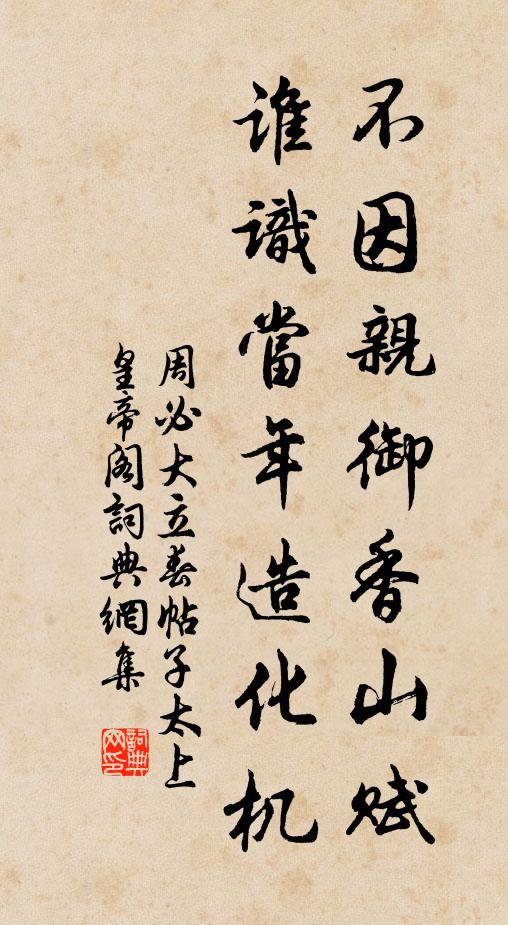 不因親御香山賦
誰識當年造化机
周必大立春帖子太上
皇帝阁詞典網集
詞典网印